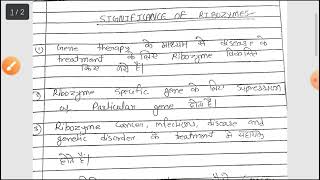 1 / 2
SIGNIFICANCE OF RIBOZYMES-
(1) Gene therapy के माध्यम से disease के
treatment के लिए Ribozyme विकसित
किए गये है।
2) Ribozyme specific gene के लिए supression
of Particular gene होता है।
3) Ribozyme Cancer, infectious, disease and
genetic disorder के treatment में सहायक
होते है।